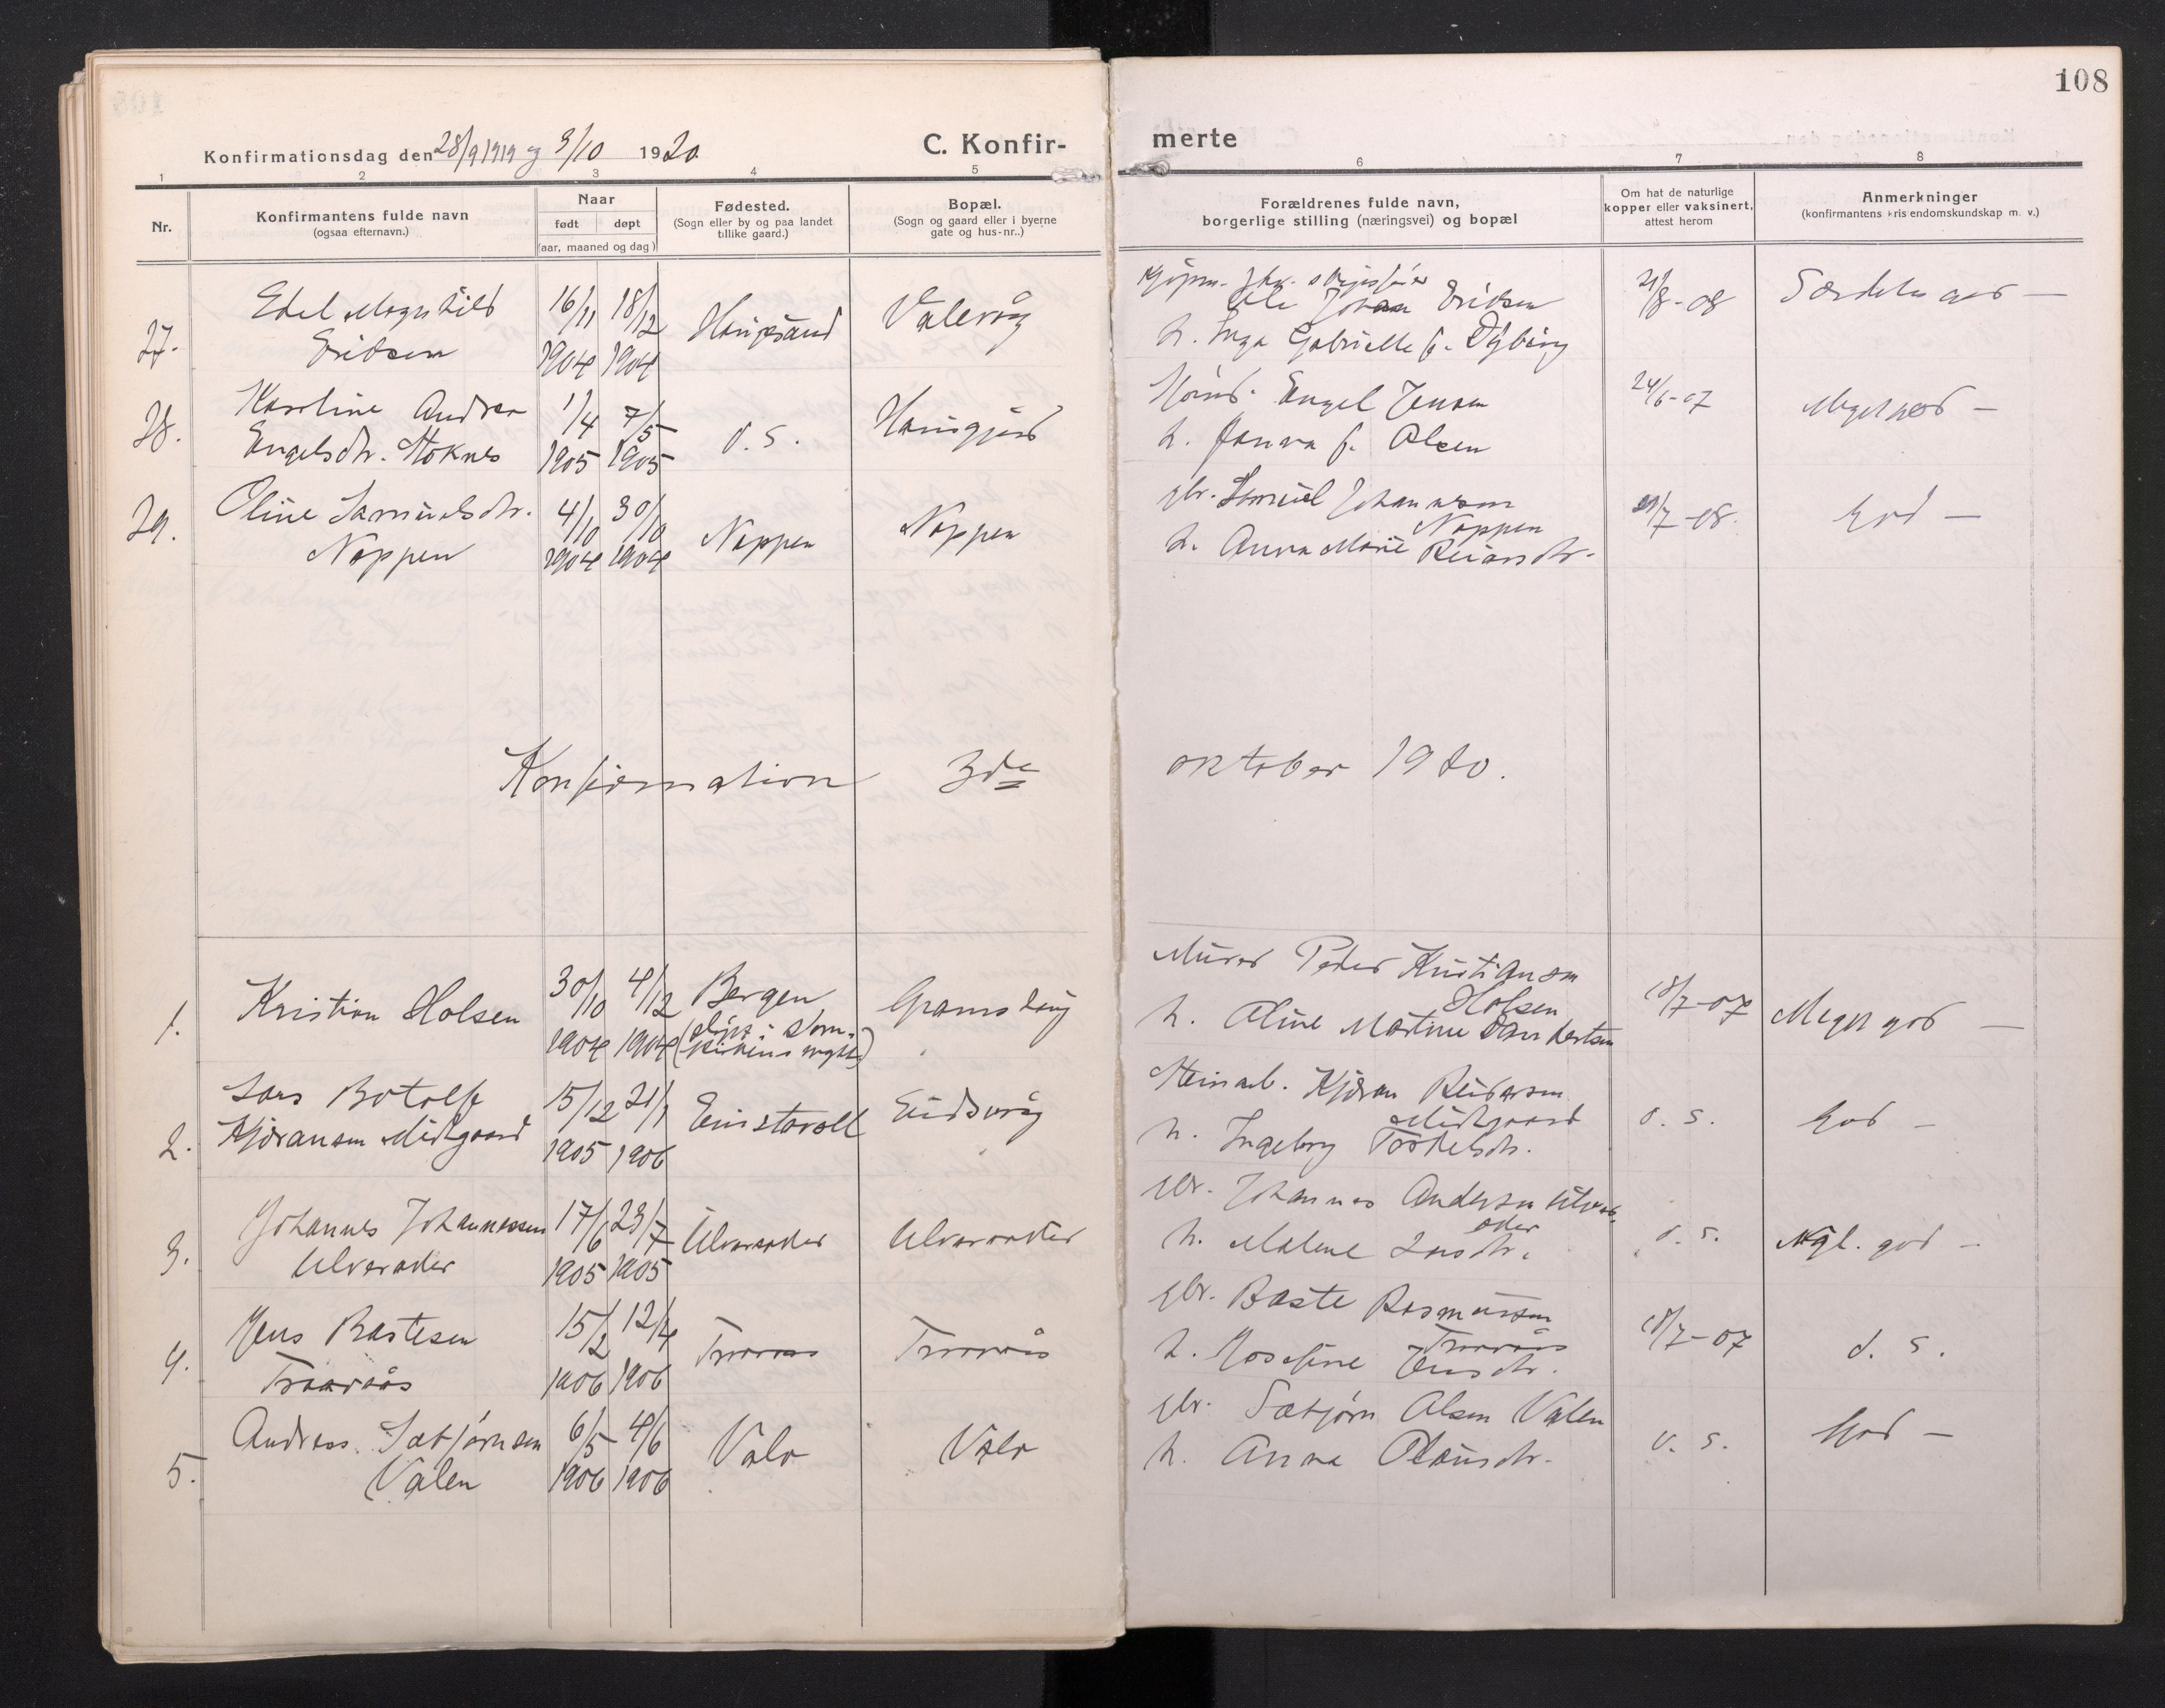 108
Konfirmationsdag den 28/9 1919 og 3/10 1920
C. Konfir-
merte
1
2
3
4
5
6
7
8
Nr.
Konfirmantens fulde navn
(ogsaa efternavn.)
Naar
født
døpt
(aar, maaned og dag)
Fødested.
(Sogn eller by og paa landet
tillike gaard.)
Bopæl.
(Sogn og gaard eller i byerne
gate og hus-nr..)
Forældrenes fulde navn,
borgerlige stilling (næringsvei) og bopæl
Om hat de naturlige
kopper eller vaksinert,
attest herom
Anmerkninger
(konfirmantens kristendomskundskap m. v.)
27.
Edel Magnhild
Eriksen
16/11
1904
18/12
1904
Haugesund
Valevåg
Ole Johan Eriksen
h. Inga Gabrielle f. Dybing
21/8-08
Særdeles god —
28.
Karoline Andrea
Engelsdtr. Stoknes
1/4
1905
7/5
1905
d. s.
Engel Jensen
h. Janna f. Olsen
24/6-07
Meget god —
29.
Oline Samuelsdtr.
Noppen
4/10
1904
30/10
1904
Noppen
Noppen
gbr. Samuel Johannesen
Noppen
h. Anna Marie Reiarsdtr.
29/7-08.
God —
Konfirmation 3de
oktober 1920.
1.
Kristian Holsen
30/10
1904
4/12
1904
Bergen
(døpt i Dom-
kirkens sogn)
Gramshaug
Murer Peder Kristiansen
Holsen
h. Oline Martine
18/7-07
Meget god —
2.
Lars Botolf
Kjøransen Midtgaard
15/12
1905
21/1
1906
Einstavoll
Eidsvåg
Steinarb. Kjøran Reidarsen
Midtgaard
h. Ingeborg Torkelsdtr.
d. s.
God —
3.
Johannes Johannessen
Ulveraker
17/6
1905
23/7
1905
Ulveraker
Ulveraker
gbr. Johannes Andersen Ulver-
aker
h. Malene Larsdtr.
d. s.
Ngl. god —
4.
Jens Bastesen
Traavaas
15/2
1906
12/4
1906
Traavaas
Traavaas
gbr. Baste Rasmussen
Traavaas
h. Josefine Jensdtr.
18/7-07
d. s.
5.
Andreas Sæbjørnsen
Valen
6/5
1906
4/6
1906
Valo
Valo
gbr. Sæbjørn Olsen Valen
h. Anna Olausdtr.
d. s.
God —